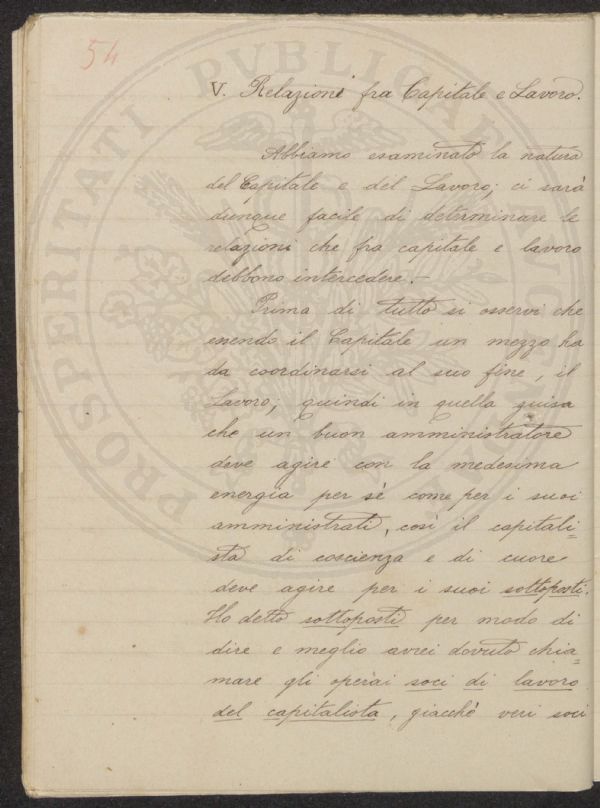 54
V. Relazioni fra Capitale e Lavoro.
Abbiamo esaminato la natura
del Capitale e del Lavoro; ci sarà
dunque facile di determinare le
relazioni che fra capitale e lavoro
debbono intercedere.-
Prima di tutto si osservi che
essendo il Capitale un mezzo ha
da coordinarsi al suo fine, il
Lavoro; quindi in quella guisa
che un buon amministratore
deve agire con la medesima
energia per sè come per i suoi
amministrati, così il capitali=
sta di coscienza e di cuore
deve agire per i suoi sottoposti.
Ho detto sottoposti per modo di
dire e meglio avrei dovuto chia=
mare gli operai soci di lavoro
del capitalista, giacchè veri soci
PROSPERITATI PVBLICAE